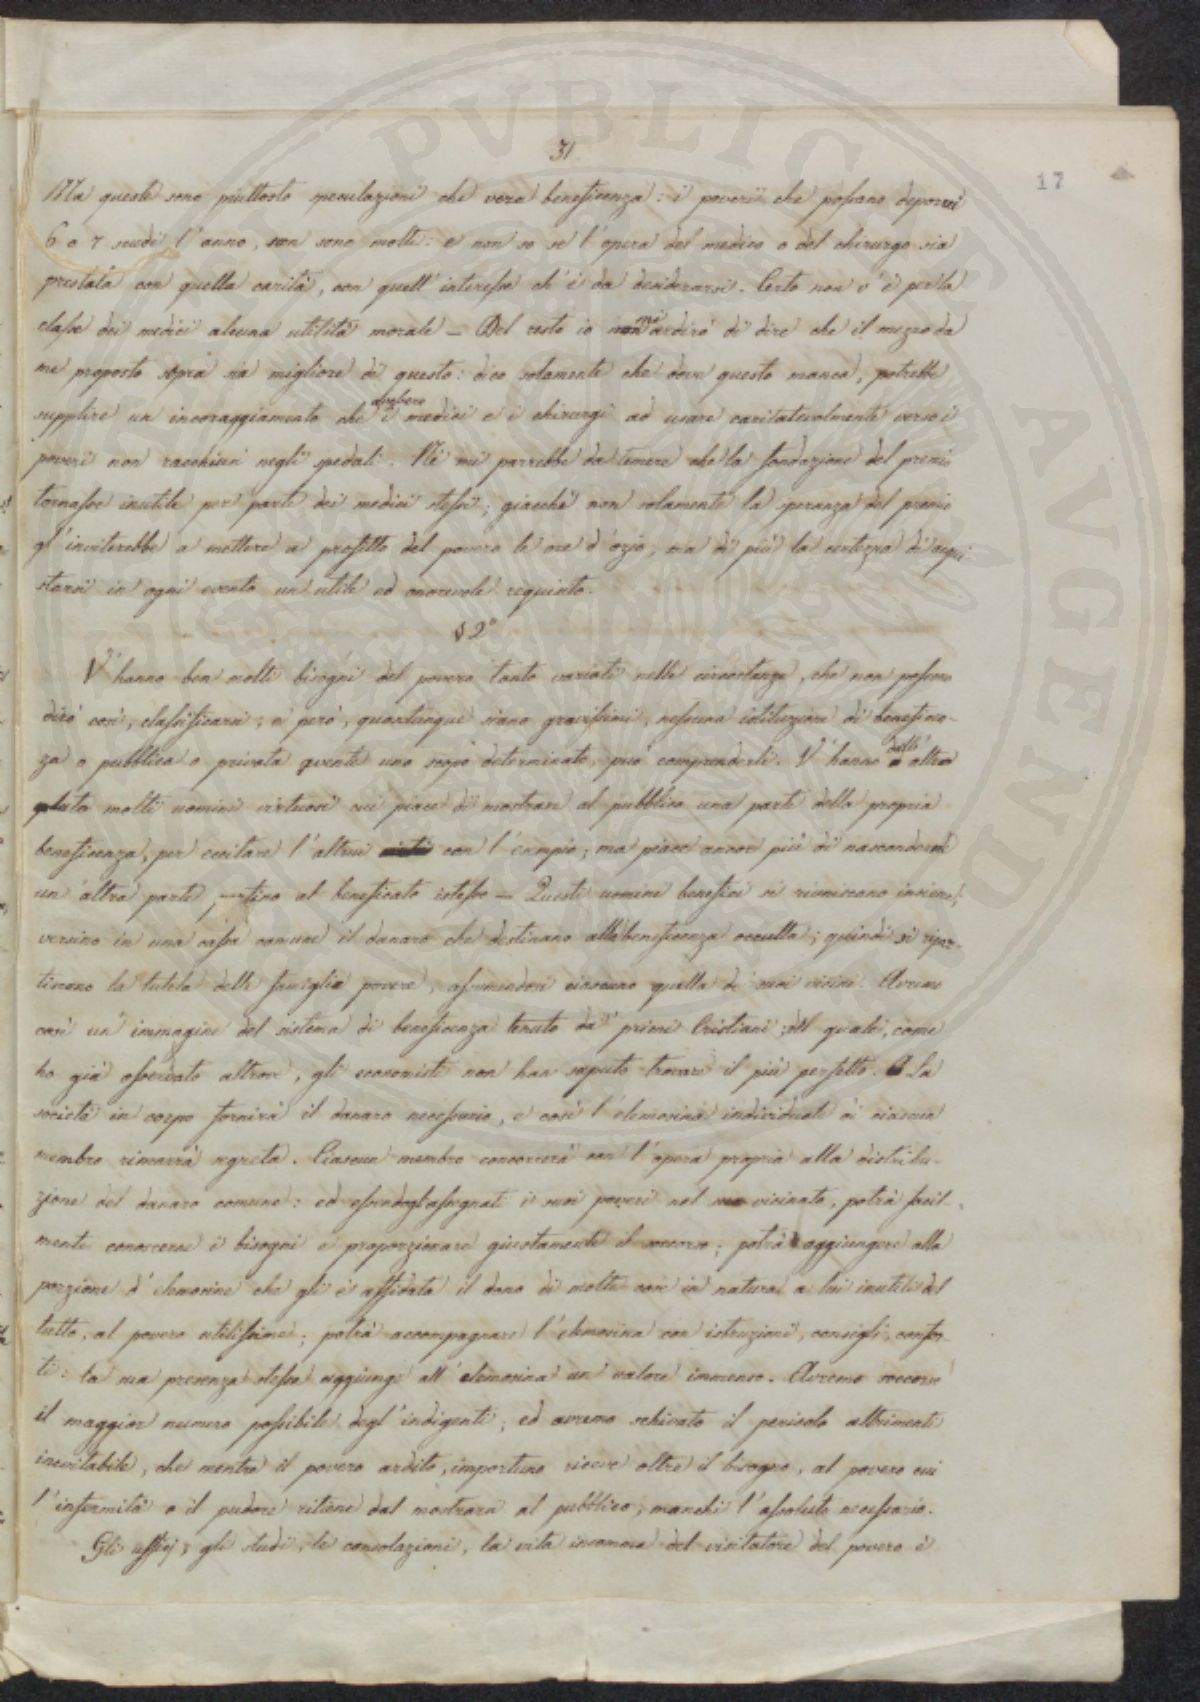 31
17
Ma queste sono piuttosto speculazioni che vera beneficenza: i poveri che possano deporre
6 o 7 scudi l'anno, non sono molti: e non so se l'opera del medico o del chirurgo sia
prestata con quella carità, con quell'interesse ch'è da desiderarsi. Certo non v'è per la
classe dei medici alcuna utilità morale — Del resto io non mi ardirò di dire che il mezzo da
me proposto sopra sia migliore di questo: dico solamente che dove questo manca, potrebbe
supplire un incoraggiamento che i medici e i chirurgi ad usare caritatevolmente verso i
poveri non racchiusi negli spedali. Nè mi parrebbe da temere che la fondazione del premio
tornasse inutile per parte dei medici stessi; giacchè non solamente la speranza del premio
gl'inviterebbe a mettere a profitto del povero le ore d'ozio, ma di più la certezza di acqui-
starsi in ogni evento un utile ed onorevole requisito.
§ 2°
V'hanno ben molti bisogni del povero tanto variati nelle circostanze, che non possono
dirò così, classificarsi; e però, quantunque siano gravissimi, nessuna istituzione di beneficen-
za o pubblica o privata avente uno scopo determinato, può comprenderli. V'hanno dall'altra
molti uomini virtuosi cui piace di mostrare al pubblico una parte della propria
beneficenza, per eccitare l'altrui con l'esempio; ma piace ancor più di nasconderne
un'altra parte, fino al beneficato istesso — Questi uomini benefici si riuniscano insieme;
versino in una cassa comune il danaro che destinano alla beneficenza occulta; quindi si ripar-
tiscano la tutela delle famiglie povere, assumendosi ciascuno quella de' suoi vicini. Avremo
così un'immagine del sistema di beneficenza tenuto da' primi Cristiani; del quale, come
ho già osservato altrove, gli economisti non han saputo trovare il più perfetto. La
società in corpo fornirà il danaro necessario, e così l'elemosina individuale di ciascun
membro rimarrà segreta. Ciascun membro concorrerà con l'opera propria alla distribu-
zione del danaro comune: ed essendogli assegnati i suoi poveri nel vicinato, potrà facil-
mente conoscerne i bisogni e proporzionare giustamente il soccorso; potrà aggiungere alla
porzione d'elemosine che gli è affidata il dono di molte cose in natura a lui inutili del
tutto, al povero utilissime; potrà accompagnare l'elemosina con istruzioni, consigli, confor-
ti: la sua presenza stessa aggiunge all'elemosina un valore immenso. Avremo soccorso
il maggior numero possibile degl'indigenti; ed avremo schivato il pericolo altrimenti
inevitabile, che mentre il povero ardito, importuno riceve oltre il bisogno, al povero cui
l'infermità o il pudore ritiene dal mostrarsi al pubblico, manchi l'assoluto necessario.
Gli uffizj, gli studi, le consolazioni, la vita insomma del visitatore del povero è
PVBLICE AVGENDO